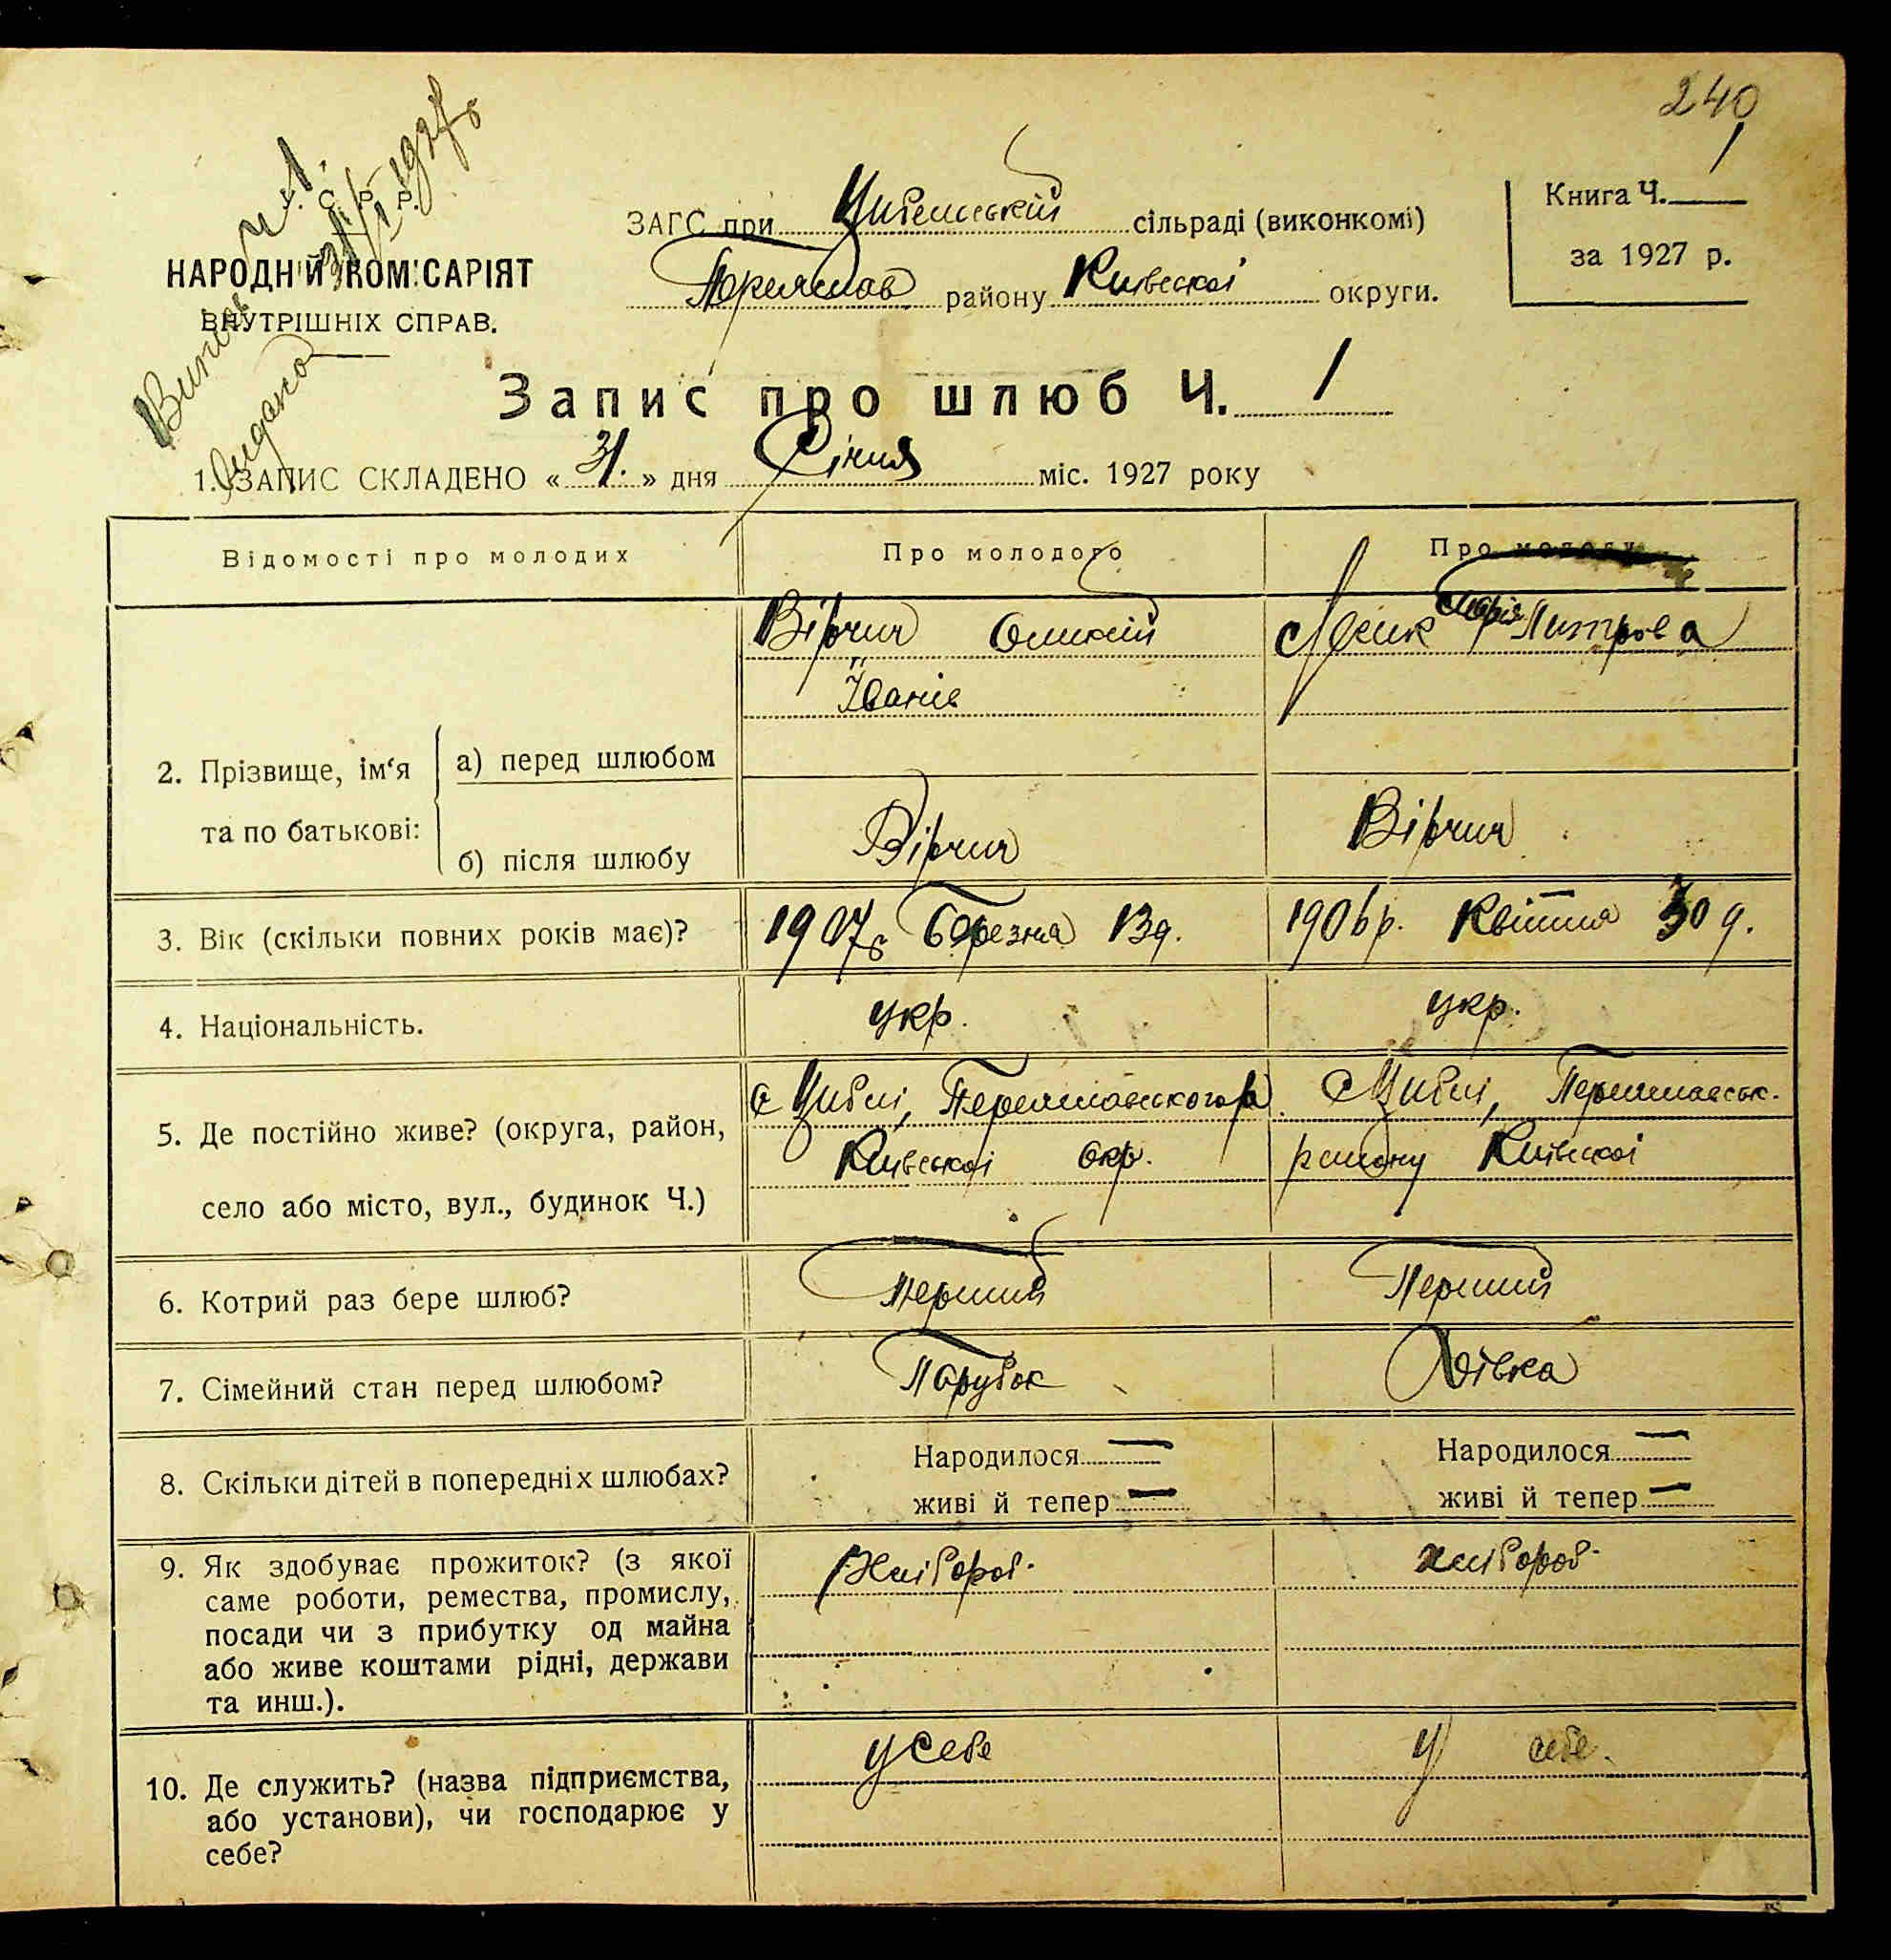 240
У. С. Р. Р.
НАРОДНІЙ КОМІСАРІЯТ
ВНУТРІШНІХ СПРАВ.
Ч 1.
31/I 1927 р
Видано
ЗАГС при Цибельській сільраді (виконкомі)
Переяслав району Київської округи.
Книга Ч. 1
за 1927 р.
Запис про шлюб Ч. 1
1. ЗАПИС СКЛАДЕНО « 31. » дня Січня міс. 1927 року
Відомості про молодих
Про молодого
Про молоду
2. Прізвище, ім‘я та по батькові:
а) перед шлюбом
Вірчич Оликсій
Іванів
Марія Питрова
б) після шлюбу
Вірчич
Вірчич
3. Вік (скільки повних років має)?
1907 р Березня 13 д.
1906 р. Квітня 30 д.
4. Національність.
укр.
укр.
5. Де постійно живе? (округа, район,
село або місто, вул., будинок Ч.)
с Циблі, Переяславського р.
Київської окр.
с Циблі, Переяславськ.
району Київської
6. Котрий раз бере шлюб?
Перший
Перший
7. Сімейний стан перед шлюбом?
Парубок
Дівка
8. Скільки дітей в попередніх шлюбах?
Народилося —
живі й тепер —
Народилося —
живі й тепер —
9. Як здобуває прожиток? (з якої
саме роботи, ремества, промислу,
посади чи з прибутку од майна
або живе коштами рідні, держави
та инш.).
Хлібороб.
хлібороб.
10. Де служить? (назва підприємства,
або установи), чи господарює у
себе?
у себе
у себе.